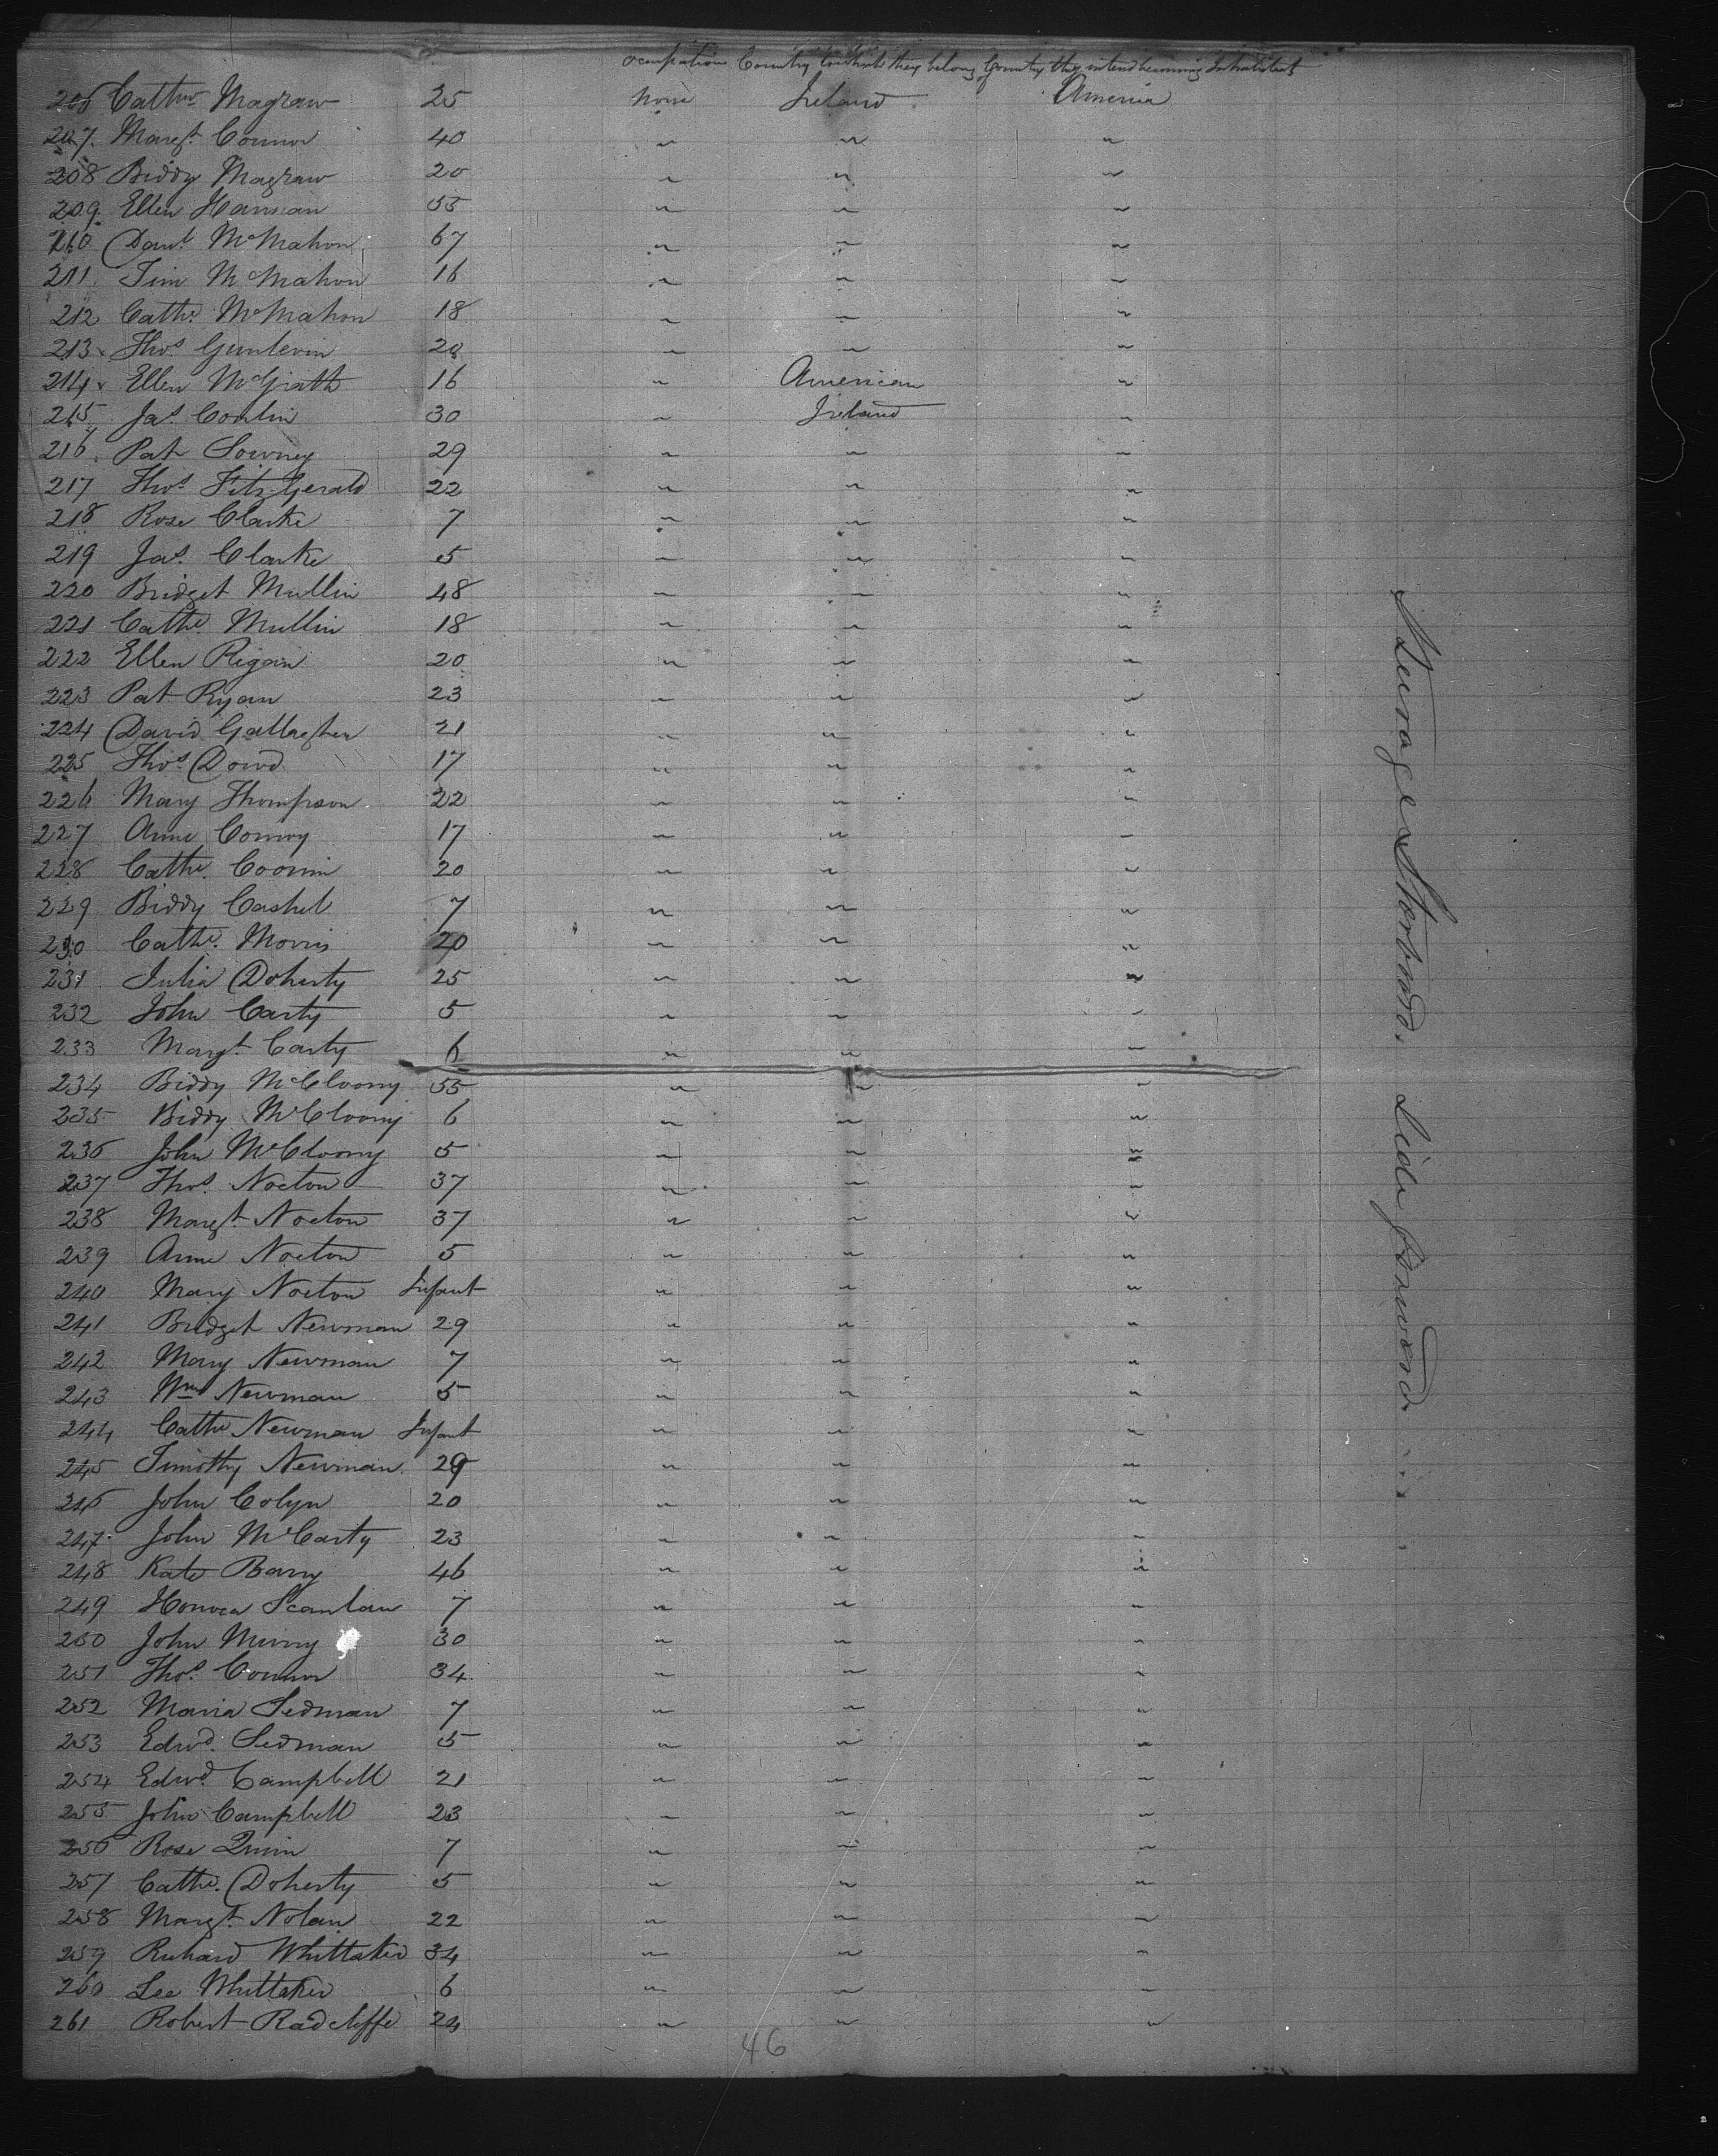 Occupation Country to which they belong Country they intend becoming Inhabitants of
206 Cathne Magraw 25 None Ireland America
207. Margt Connor 40 " " "
208 Biddy Magraw 20 " " "
209. Ellen Hannan 55 " " "
210 Danl McMahon 67 " " "
211. Tim McMahon 16 " " "
212 Cathe McMahon 18 " " "
213 Thos 28 " " "
214 Ellen McGrath 16 " American "
215 Jas Conlin 30 " Ireland "
216. Pat Downey 29 " " "
217 Thos FitzGerald 22 " " "
218 Rose Clarke 7 " " "
219 Jas Clarke 5 " " "
220 Bridget Mullin 48 " " "
221 Cathe Mullin 18 " " "
222 Ellen Rigan 20 " " "
223 Pat Ryan 23 " " "
224 David Gallagher 21 " " "
225 Thos Dowd 17 " " "
226 Mary Thompson 22 " " "
227 Anne Conroy 17 " " "
228 Cathe. 20 " " "
229 Biddy Cashel 7 " " "
230 Cathe. Morris 20 " " "
231 Julia Doherty 25 " " "
232 John Carty 5 " " "
233 Margt Carty 6 " " "
234 Biddy McCloony 55 " " "
235 Biddy McCloony 6 " " "
236 John McCloony 5 " " "
237 Thos. Nocton 37 " " "
238 Margt Nocton 37 " " "
239 Anne Nocton 5 " " "
240 Mary Nocton Infant " " "
241 Bridget Newman 29 " " "
242 Mary Newman 7 " " "
243 Wm Newman 5 " " "
244 Cathe Newman Infant " " "
245 Timothy Newman 29 " " "
246 John Colyn 20 " " "
247. John McCarty 23 " " "
248 Kate Barry 46 " " "
249 Honora Scanlan 7 " " "
250 John Murry 30 " " "
251 Thos. Connor 34 " " "
252 Maria Sedman 7 " " "
253 Edwd. Sedman 5 " " "
254 Edwd. Campbell 21 " " "
255 John Campbell 23 " " "
256 Rose Quinn 7 " " "
257 Cathe. Doherty 5 " " "
258 Margt. Nolan 22 " " "
259 Richard Whittaker 34 " " "
260 Lee Whittaker 6 " " "
261 Robert Radcliffe 24 " " "
46
Steerage Starboard. Side forward